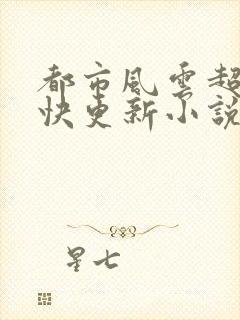 都市風雲超
快更新小說
星七